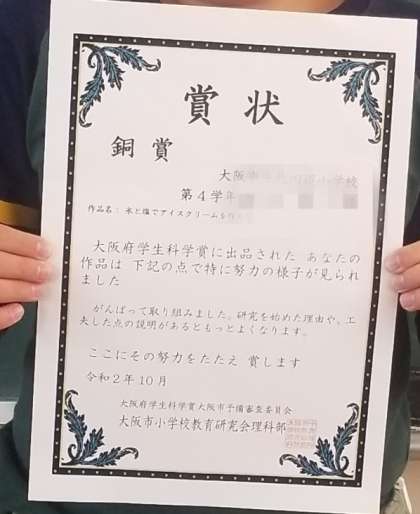 賞状
銅賞
大阪市
小学校
第4学年
作品名：氷と塩でアイスクリームを作
大阪府学生科学賞に出品された あなたの
作品は 下記の点で特に努力の様子が見られ
ました
がんばって取り組みました。研究を始めた理由や、工
夫した点の説明があるともっとよくなります。
ここにその努力をたたえ 賞します
令和2年10月
大阪府学生科学賞大阪市予備審査委員会
大阪市小学校教育研究会理科部